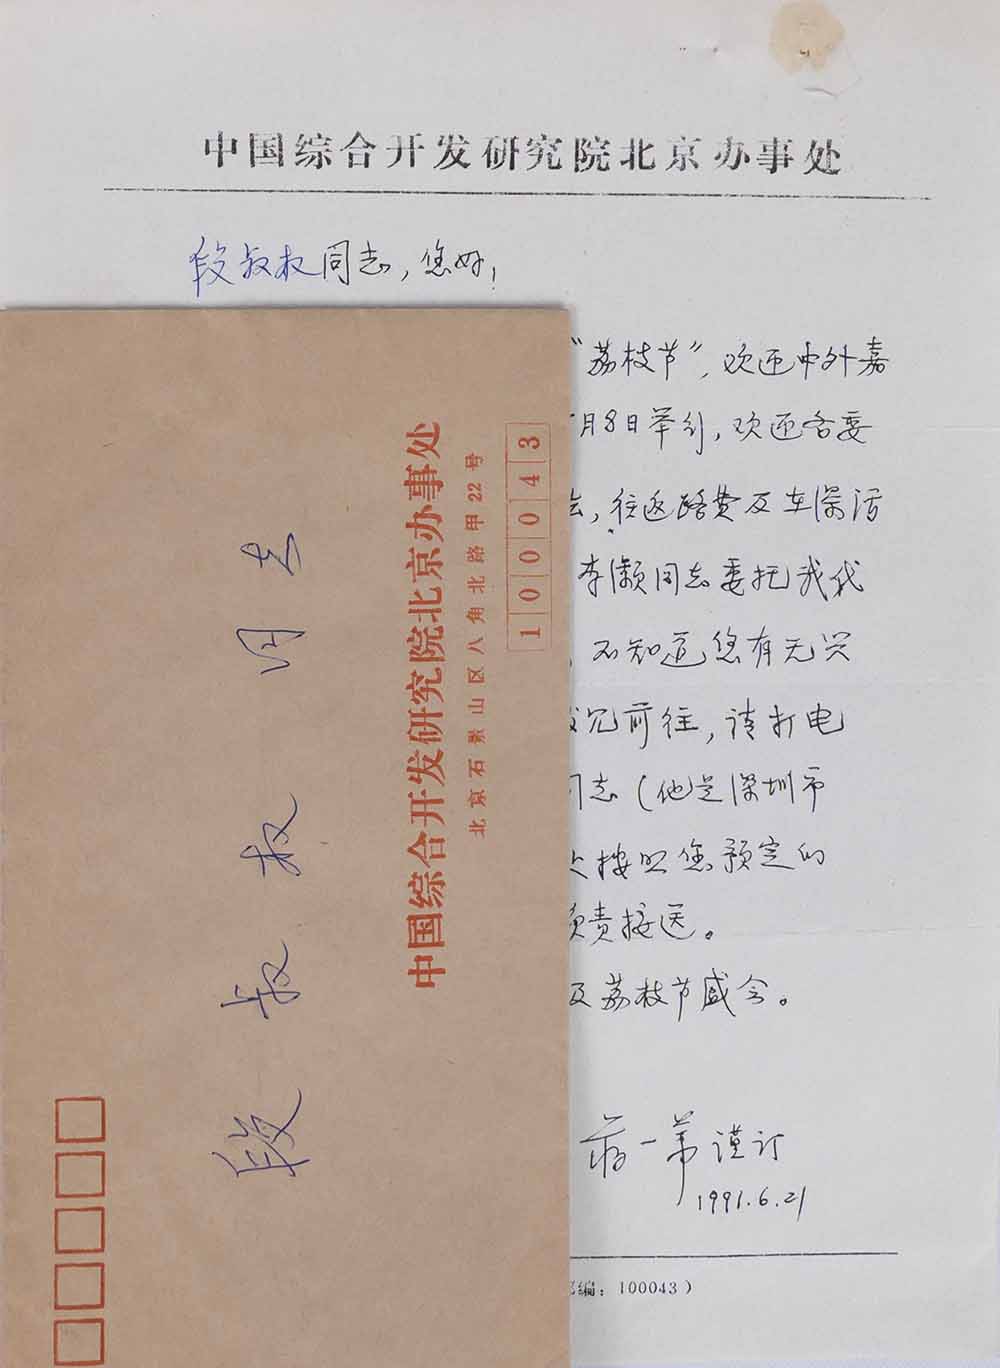 中国综合开发研究院北京办事处
段叔权同志，您好！
“荔枝节”，欢迎中外嘉
月8日举行，欢迎各委
会，往返路费及在深活
李灏同志委托我代
，不知道您有无兴
前往，请打电
同志（他是深圳市
按照您预定的
负责接送。
及荔枝节盛会。
蒋一苇谨订
1991.6.21
编：100043）
中国综合开发研究院北京办事处
北京石景山区八角北路甲22号
100043
段叔权同志